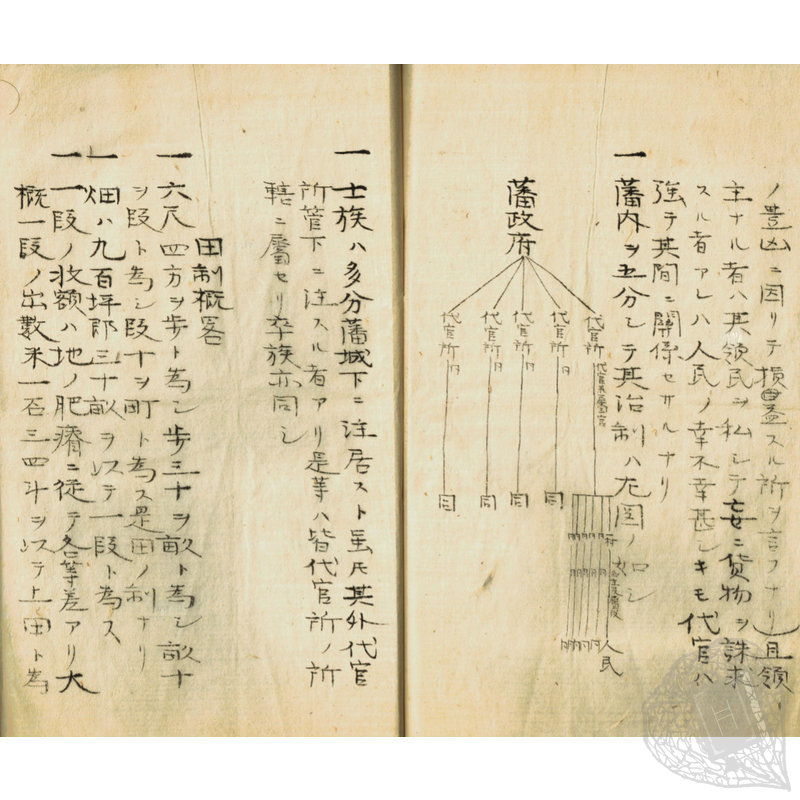 ノ豊凶ニ因リテ損益スル所ヲ言フナリ且領
主ナル者ハ其領民ヲ私シテ妄ニ貨物ヲ誅求
スル者アレハ人民ノ幸不幸甚シキモ代官ハ
強テ其間ニ關係セサルナリ
一 藩内ヲ五分シテ其治制ハ左圖ノ如シ
藩政府
代官所 代官又属官
代官所 同
代官所 同
代官所 同
代官所 同
村
同 同 同 同
人民
同 同 同 同
同
同
同
同
一 士族ハ多分藩城下ニ住居スト虽𪜈其外代官
所管下ニ住スル者アリ是等ハ皆代官所ノ所
轄ニ屬セリ卒族亦同シ
田制概畧
一 六尺四方ヲ歩ト為シ歩三十ヲ畝ト為シ畝十
ヲ段ト為シ段十ヲ町ト為ス是田ノ制ナリ
一 畑ハ九百坪即三十畝ヲ以テ一段ト為ス
一 一段ノ收額ハ地ノ肥瘠ニ従テ各等差アリ大
概一段ノ出數米一石三四斗ヲ以テ上田ト為